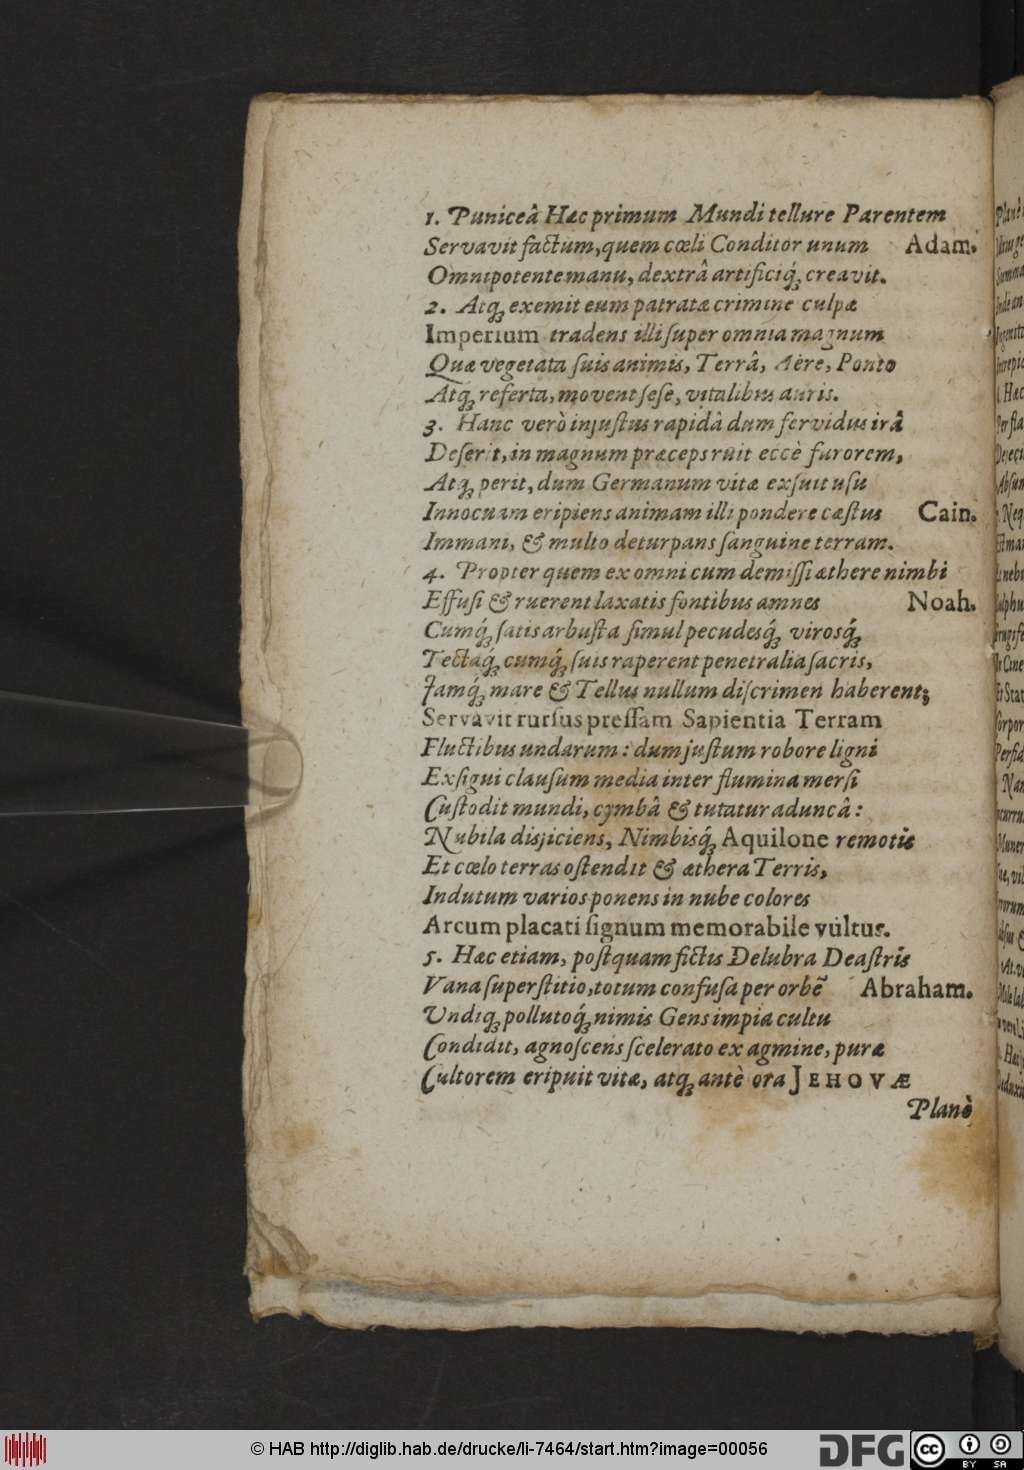 1. Puniceâ Hæc primum Mundi tellure Parentem
Servavit factum, quem cœli Conditor unum Adam.
Omnipotente manu, dextrâ artificiq́ꝫ creavit.
2. Atqꝫ exemit eum patratæ crimine culpæ
Imperium tradens illi ſuper omnia magnum
Quæ vegetata ſuis animis, Terrâ, Aëre, Ponto
Atq́ꝫ referta, movent ſeſe, vitalibus auris.
3. Hanc verò injuſtus rapidâ dum fervidus irâ
Deſerit, in magnum præceps ruit eccè furorem,
Atqꝫ perit, dum Germanum vitæ exſuit uſu
Innocuam eripiens animam illi pondere cæſtus Cain.
Immani, & multo deturpans ſanguine terram.
4. Propter quem ex omni cum demiſſi æthere nimbi
Effuſi & ruerent laxatis fontibus amnes Noah.
Cumq́ꝫ ſatis arbuſta ſimul pecudesq́ꝫ virosq́ꝫ
Tectaq́ꝫ cumq́ꝫ ſuis raperent penetralia ſacris,
Jamq́ꝫ mare & Tellus nullum diſcrimen haberent;
Servavit rurſus preſſam Sapientia Terram
Fluctibus undarum: dum juſtum robore ligni
Exſigui clauſum media inter flumina merſi
Cuſtodit mundi, cymbâ & tutatur aduncâ:
Nubila disjiciens, Nimbisq́ꝫ Aquilone remotis
Et cœlo terras oſtendit & æthera Terris,
Indutum varios ponens in nube colores
Arcum placati ſignum memorabile vultus.
5. Hæc etiam, poſtquam fictis Delubra Deaſtris
Vana ſuperſtitio, totum confuſa per orbẽ Abraham.
Undiqꝫ pollutoq́ꝫ nimis Gens impia cultu
Condidit, agnoſcens ſcelerato ex agmine, puræ
Cultorem eripuit vitæ, atqꝫ antè ora JEHOVÆ
Planè
© HAB http://diglib.hab.de/drucke/li-7464/start.htm?image=00056
DFG
cc
BY SA